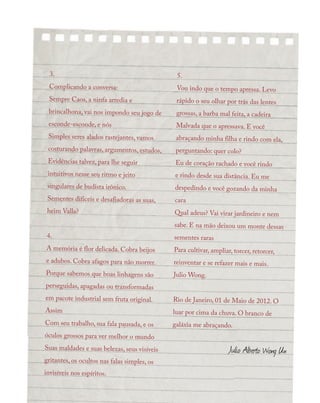 3.
Complicando a conversa:
Sempre Caos, a ninfa arredia e
brincalhona, vai nos impondo seu jogo de
esconde-esconde, e nós
Simples seres alados rastejantes, vamos
costurando palavras, argumentos, estudos,
Evidências talvez, para lhe seguir
intuitivos nesse seu ritmo e jeito
singulares de budista irônico.
Sementes difíceis e desafiadoras as suas,
heim Valla?
4.
A memória é flor delicada. Cobra beijos
e adubos. Cobra afagos para não morrer.
Porque sabemos que boas linhagens são
perseguidas, apagadas ou transformadas
em pacote industrial sem fruta original.
Assim
Com seu trabalho, sua fala pausada, e os
óculos grossos para ver melhor o mundo
Suas maldades e suas belezas, seus visíveis
gritantes, os ocultos nas falas simples, os
invisíveis nos espíritos.
5.
Vou indo que o tempo apressa. Levo
rápido o seu olhar por trás das lentes
grossas, a barba mal feita, a cadeira
Malvada que o apressava. E você
abraçando minha filha e rindo com ela,
perguntando: quer colo?
Eu de coração rachado e você rindo
e rindo desde sua distância. Eu me
despedindo e você gozando da minha
cara
Qual adeus? Vai virar jardineiro e nem
sabe. E na mão deixou um monte dessas
sementes raras
Para cultivar, ampliar, torcer, retorcer,
reinventar e se refazer mais e mais.
Julio Wong.
Rio de Janeiro, 01 de Maio de 2012. O
luar por cima da chuva. O branco de
galáxia me abraçando.
Julio Alberto Wong Un